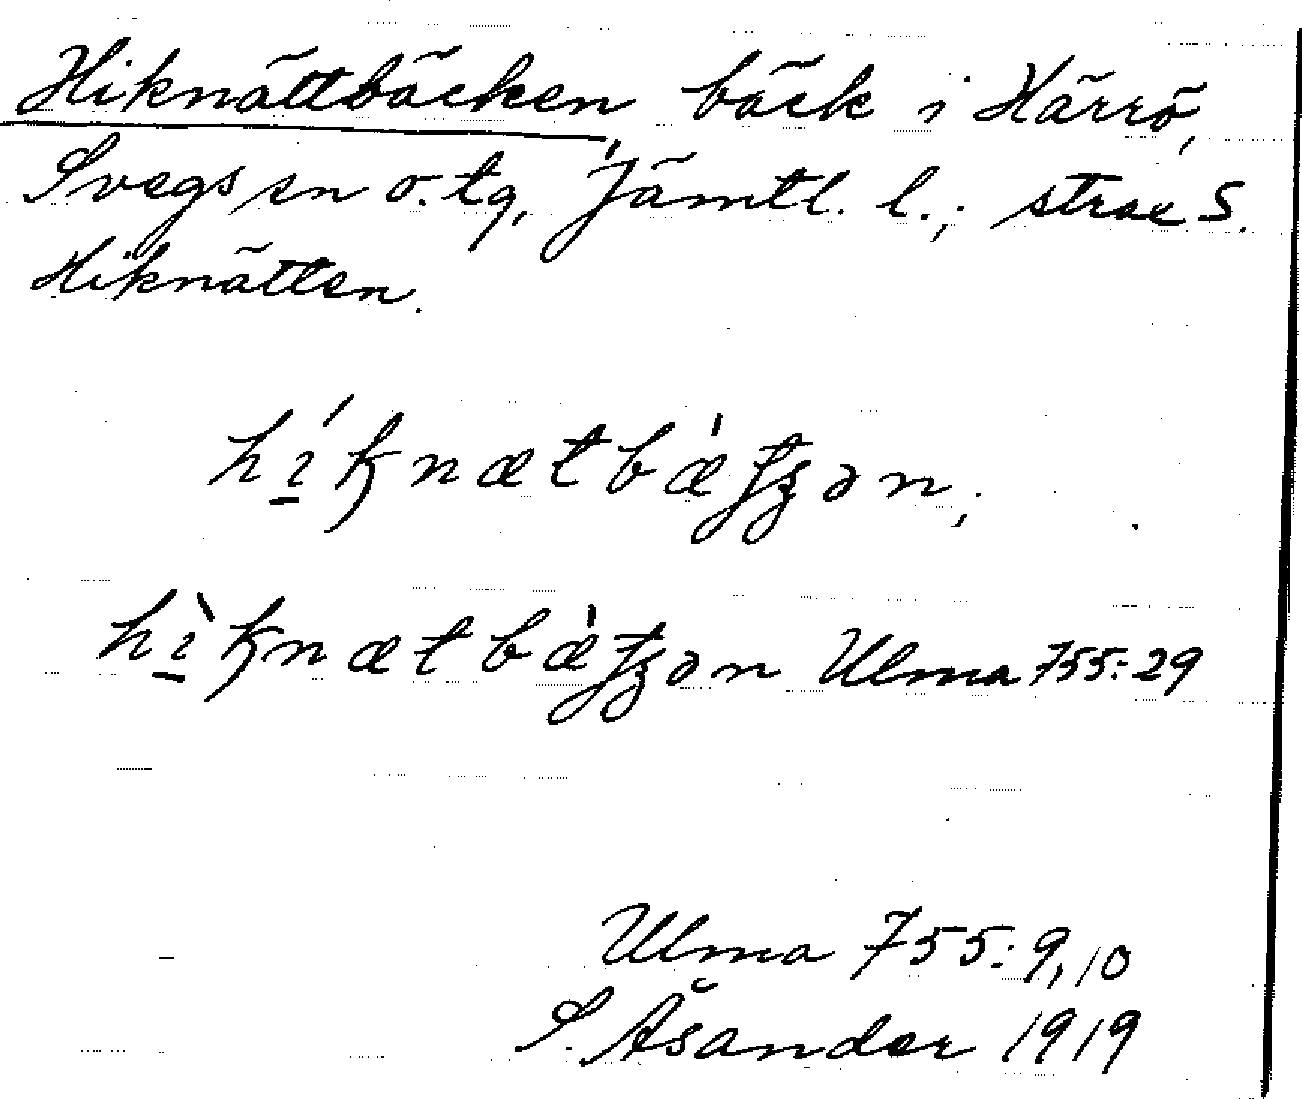 Hiknättbäcken, bäck i Härrö,
Svegs sn o. tg, Jämtl. l.; strax S.
Hiknätten.
hı̲́ꞣnætbæ̍tʂən;
hı̲̀ꞣnætbæ̍tʂən Ulma 755:29
Ulma 755:9,10
S. Åsander 1919